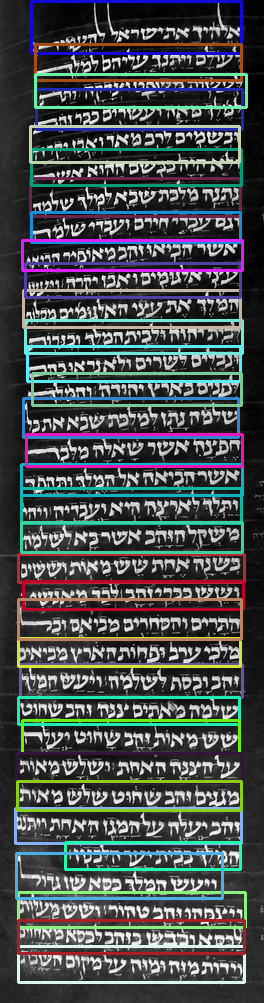 אלהיך את ישראל להעמידו
לעולם ויתנך עליהם למלך
לעשות משפט וצדקה ותתן
למלך מאה ועשרים ככר זהב
ובשמים לרב מאד ואבן יקרה
ולא היה כבשם ההוא אשר
נתנה מלכת שבא למלך שלמה
וגם עבדי חירם ועבדי שלמה
אשר הביאו זהב מאופיר הביאו
עצי אלגומים ואבן יקרה ויעש
המלך את עצי האלגומים מסלות
לבית יהוה ולבית המלך וכנרות
ונבלים לשרים ולא נראו כהם
לפנים בארץ יהודה והמלך
שלמה נתן למלכת שבא את כל
חפצה אשר שאלה מלבד
אשר הביאה אל המלך ותהפך
ותלך לארצה היא ועבדיה ויהי
משקל הזהב אשר בא לשלמה
בשנה אחת שש מאות וששים
ושש ככרי זהב לבד מאנשי
התרים והסחרים מביאים וכל
מלכי ערב ופחות הארץ מביאים
זהב וכסף לשלמה ויעש המלך
שלמה מאתים צנה זהב שחוט
שש מאות זהב שחוט יעלה
על הצנה האחת ושלש מאות
מגנים זהב שחוט שלש מאות
זהב יעלה על המגן האחת ויתנם
המלך בבית יער הלבנון
ויעש המלך כסא שן גדול
ויצפהו זהב טהור ושש מעלות
לכסא וכבש בזהב לכסא מאחזים
וידות מזה ומזה על מקום השבת